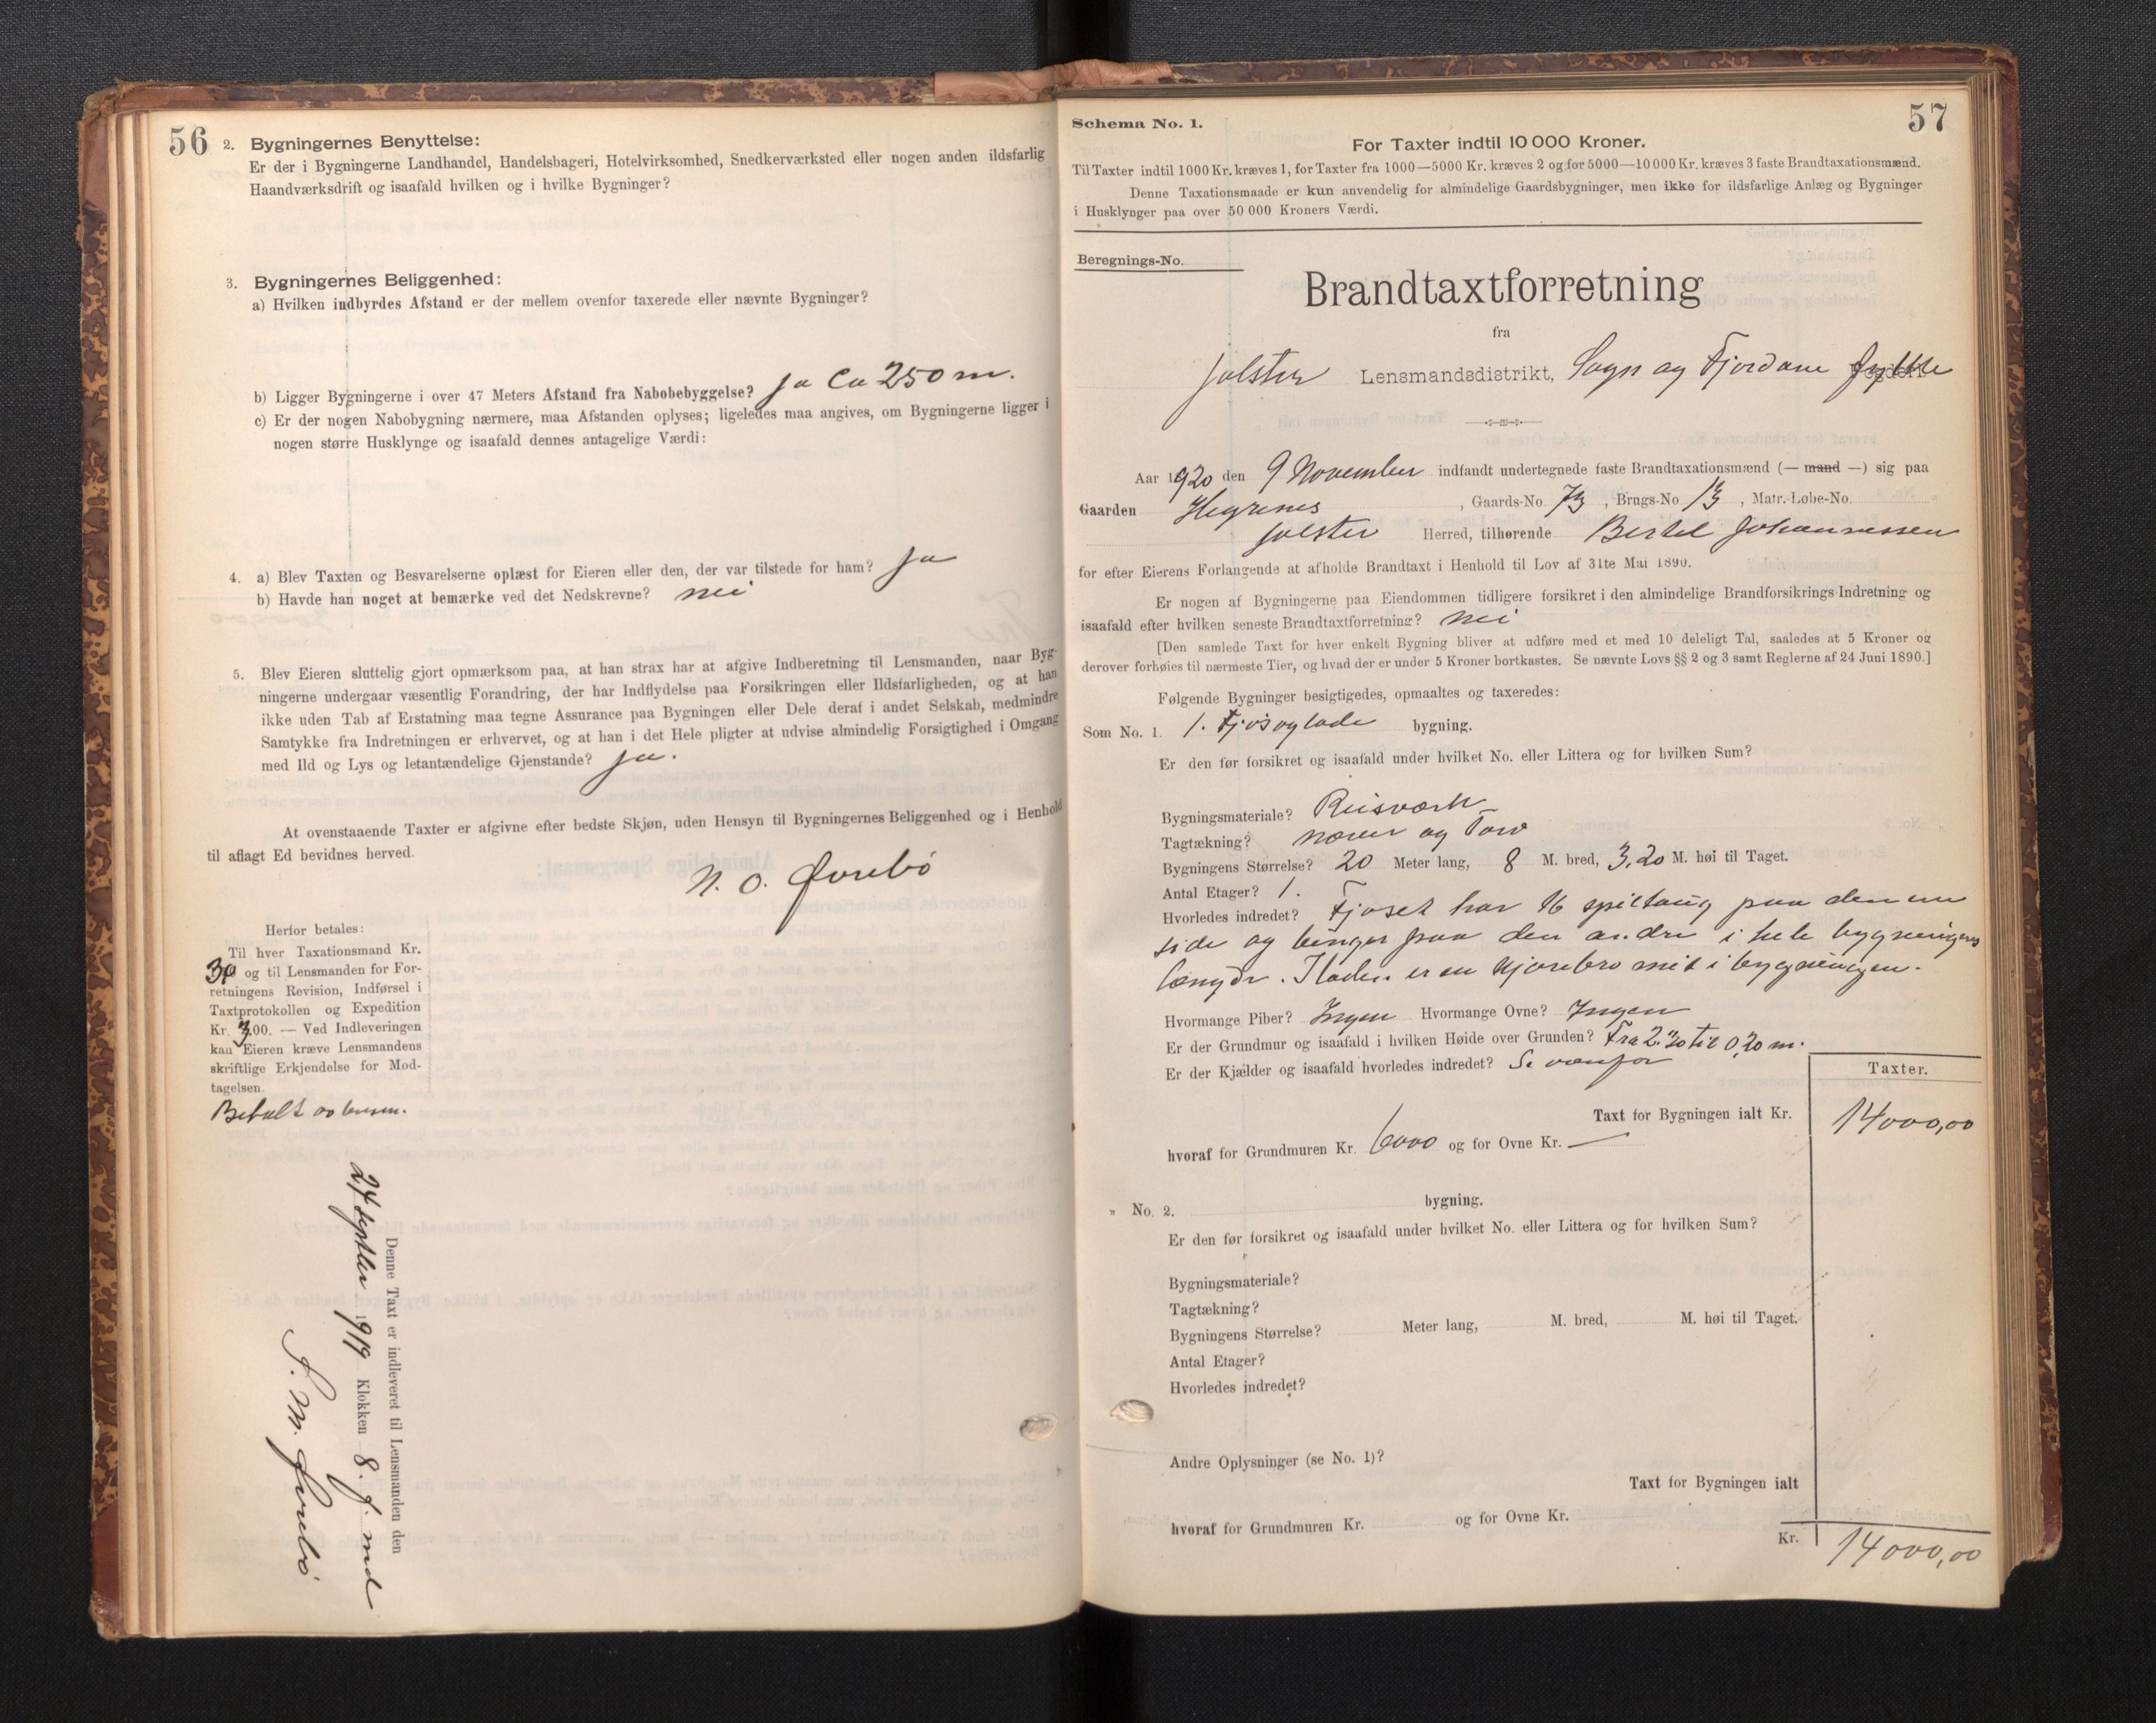 56
2. Bygningernes Benyttelse:
Er der i Bygningerne Landhandel, Handelsbageri, Hotelvirksomhed, Snedkerværksted eller nogen anden ildsfarlig
Haandværksdrift og isaafald hvilken og i hvilke Bygninger?
3. Bygningernes Beliggenhed:
a) Hvilken indbyrdes Afstand er der mellem ovenfor taxerede eller nævnte Bygninger?
b) Ligger Bygningerne i over 47 Meters Afstand fra Nabobebyggelse? ja ca 250 m.
c) Er der nogen Nabobygning nærmere, maa Afstanden oplyses; ligeledes maa angives, om Bygningerne ligger i
nogen større Husklynge og isaafald dennes antagelige Værdi:
4. a) Blev Taxten og Besvarelserne oplæst for Eieren eller den, der var tilstede for ham? ja
b) Havde han noget at bemærke ved det Nedskrevne? nei
5. Blev Eieren sluttelig gjort opmærksom paa, at han strax har at afgive Indberetning til Lensmanden, naar Byg-
ningerne undergaar væsentlig Forandring, der har Indflydelse paa Forsikringen eller Ildsfarligheden, og at han
ikke uden Tab af Erstatning maa tegne Assurance paa Bygningen eller Dele deraf i andet Selskab, medmindre
Samtykke fra Indretningen er erhvervet, og at han i det Hele pligter at udvise almindelig Forsigtighed i Omgang
med Ild og Lys og letantændelige Gjenstande? ja.
At ovenstaaende Taxter er afgivne efter bedste Skjøn, uden Hensyn til Bygningernes Beliggenhed og i Henhold
til aflagt Ed bevidnes herved.
N. O. Øvrebö
Herfor betales:
Til hver Taxationsmand Kr.
og til Lensmanden for For-
retningens Revision, Indførsel i
Taxtprotokollen og Expedition
Kr. 3.00. — Ved Indleveringen
kan Eieren kræve Lensmandens
skriftlige Erkjendelse for Mod-
tagelsen.
Betalt av
Denne Taxt er indleveret til Lensmanden den
24 1919 Klokken 8 f. md
S. M. Øvrebö
57
Schema No. 1.
For Taxter indtil 10 000 Kroner.
Til Taxter indtil 1000 Kr. kræves 1, for Taxter fra 1000—5000 Kr. kræves 2 og for 5000—10 000 Kr. kræves 3 faste Brandtaxationsmænd.
Denne Taxationsmaade er kun anvendelig for almindelige Gaardsbygninger, men ikke for ildsfarlige Anlæg og Bygninger
i Husklynger paa over 50 000 Kroners Værdi.
Beregnings-No.
Brandtaxtforretning
fra
Jølster Lensmandsdistrikt, Sogn og Fjordane fylke
Aar 1920 den 9 November indfandt undertegnede faste Brandtaxationsmænd (— mand —) sig paa
Gaarden Hegrenes, Gaards-No. 73, Brugs-No. 13, Matr.-Løbe-No.
Jølster Herred, tilhørende Bertel Johannessen
for efter Eierens Forlangende at afholde Brandtaxt i Henhold til Lov af 31te Mai 1890.
Er nogen af Bygningerne paa Eiendommen tidligere forsikret i den almindelige Brandforsikrings-Indretning og
isaafald efter hvilken seneste Brandtaxtforretning? nei
[Den samlede Taxt for hver enkelt Bygning bliver at udføre med et med 10 deleligt Tal, saaledes at 5 Kroner og
derover forhøies til nærmeste Tier, og hvad der er under 5 Kroner bortkastes. Se nævnte Lovs §§ 2 og 3 samt Reglerne af 24 Juni 1890.]
Følgende Bygninger besigtigedes, opmaaltes og taxeredes:
Som No. 1. 1. Fjøs og lade bygning.
Er den før forsikret og isaafald under hvilket No. eller Littera og for hvilken Sum?
Bygningsmateriale? Reisverk
Tagtækning? næver og torv
Bygningens Størrelse? 20 Meter lang, 8 M. bred, 3,20 M. høi til Taget.
Antal Etager? 1.
Hvorledes indredet? Fjøset har 16 spiltaug paa den ene
side og binger paa den andre i hele bygningens
længde. I laden er en kjørebro mit i bygningen.
Hvormange Piber? Ingen Hvormange Ovne? Ingen
Er der Grundmur og isaafald i hvilken Høide over Grunden? Fra 2.30 til 0,20 m.
Er der Kjælder og isaafald hvorledes indredet? Se ovenfor
Taxter.
Taxt for Bygningen ialt Kr. 14000,00
hvoraf for Grundmuren Kr. 6000 og for Ovne Kr. —
„ No. 2. bygning.
Er den før forsikret og isaafald under hvilket No. eller Littera og for hvilken Sum?
Bygningsmateriale?
Tagtækning?
Bygningens Størrelse? Meter lang, M. bred, M. høi til Taget.
Antal Etager?
Hvorledes indredet?
Andre Oplysninger (se No. 1)?
Taxt for Bygningen ialt
hvoraf for Grundmuren Kr. og for Ovne Kr.
Kr. 14000,00